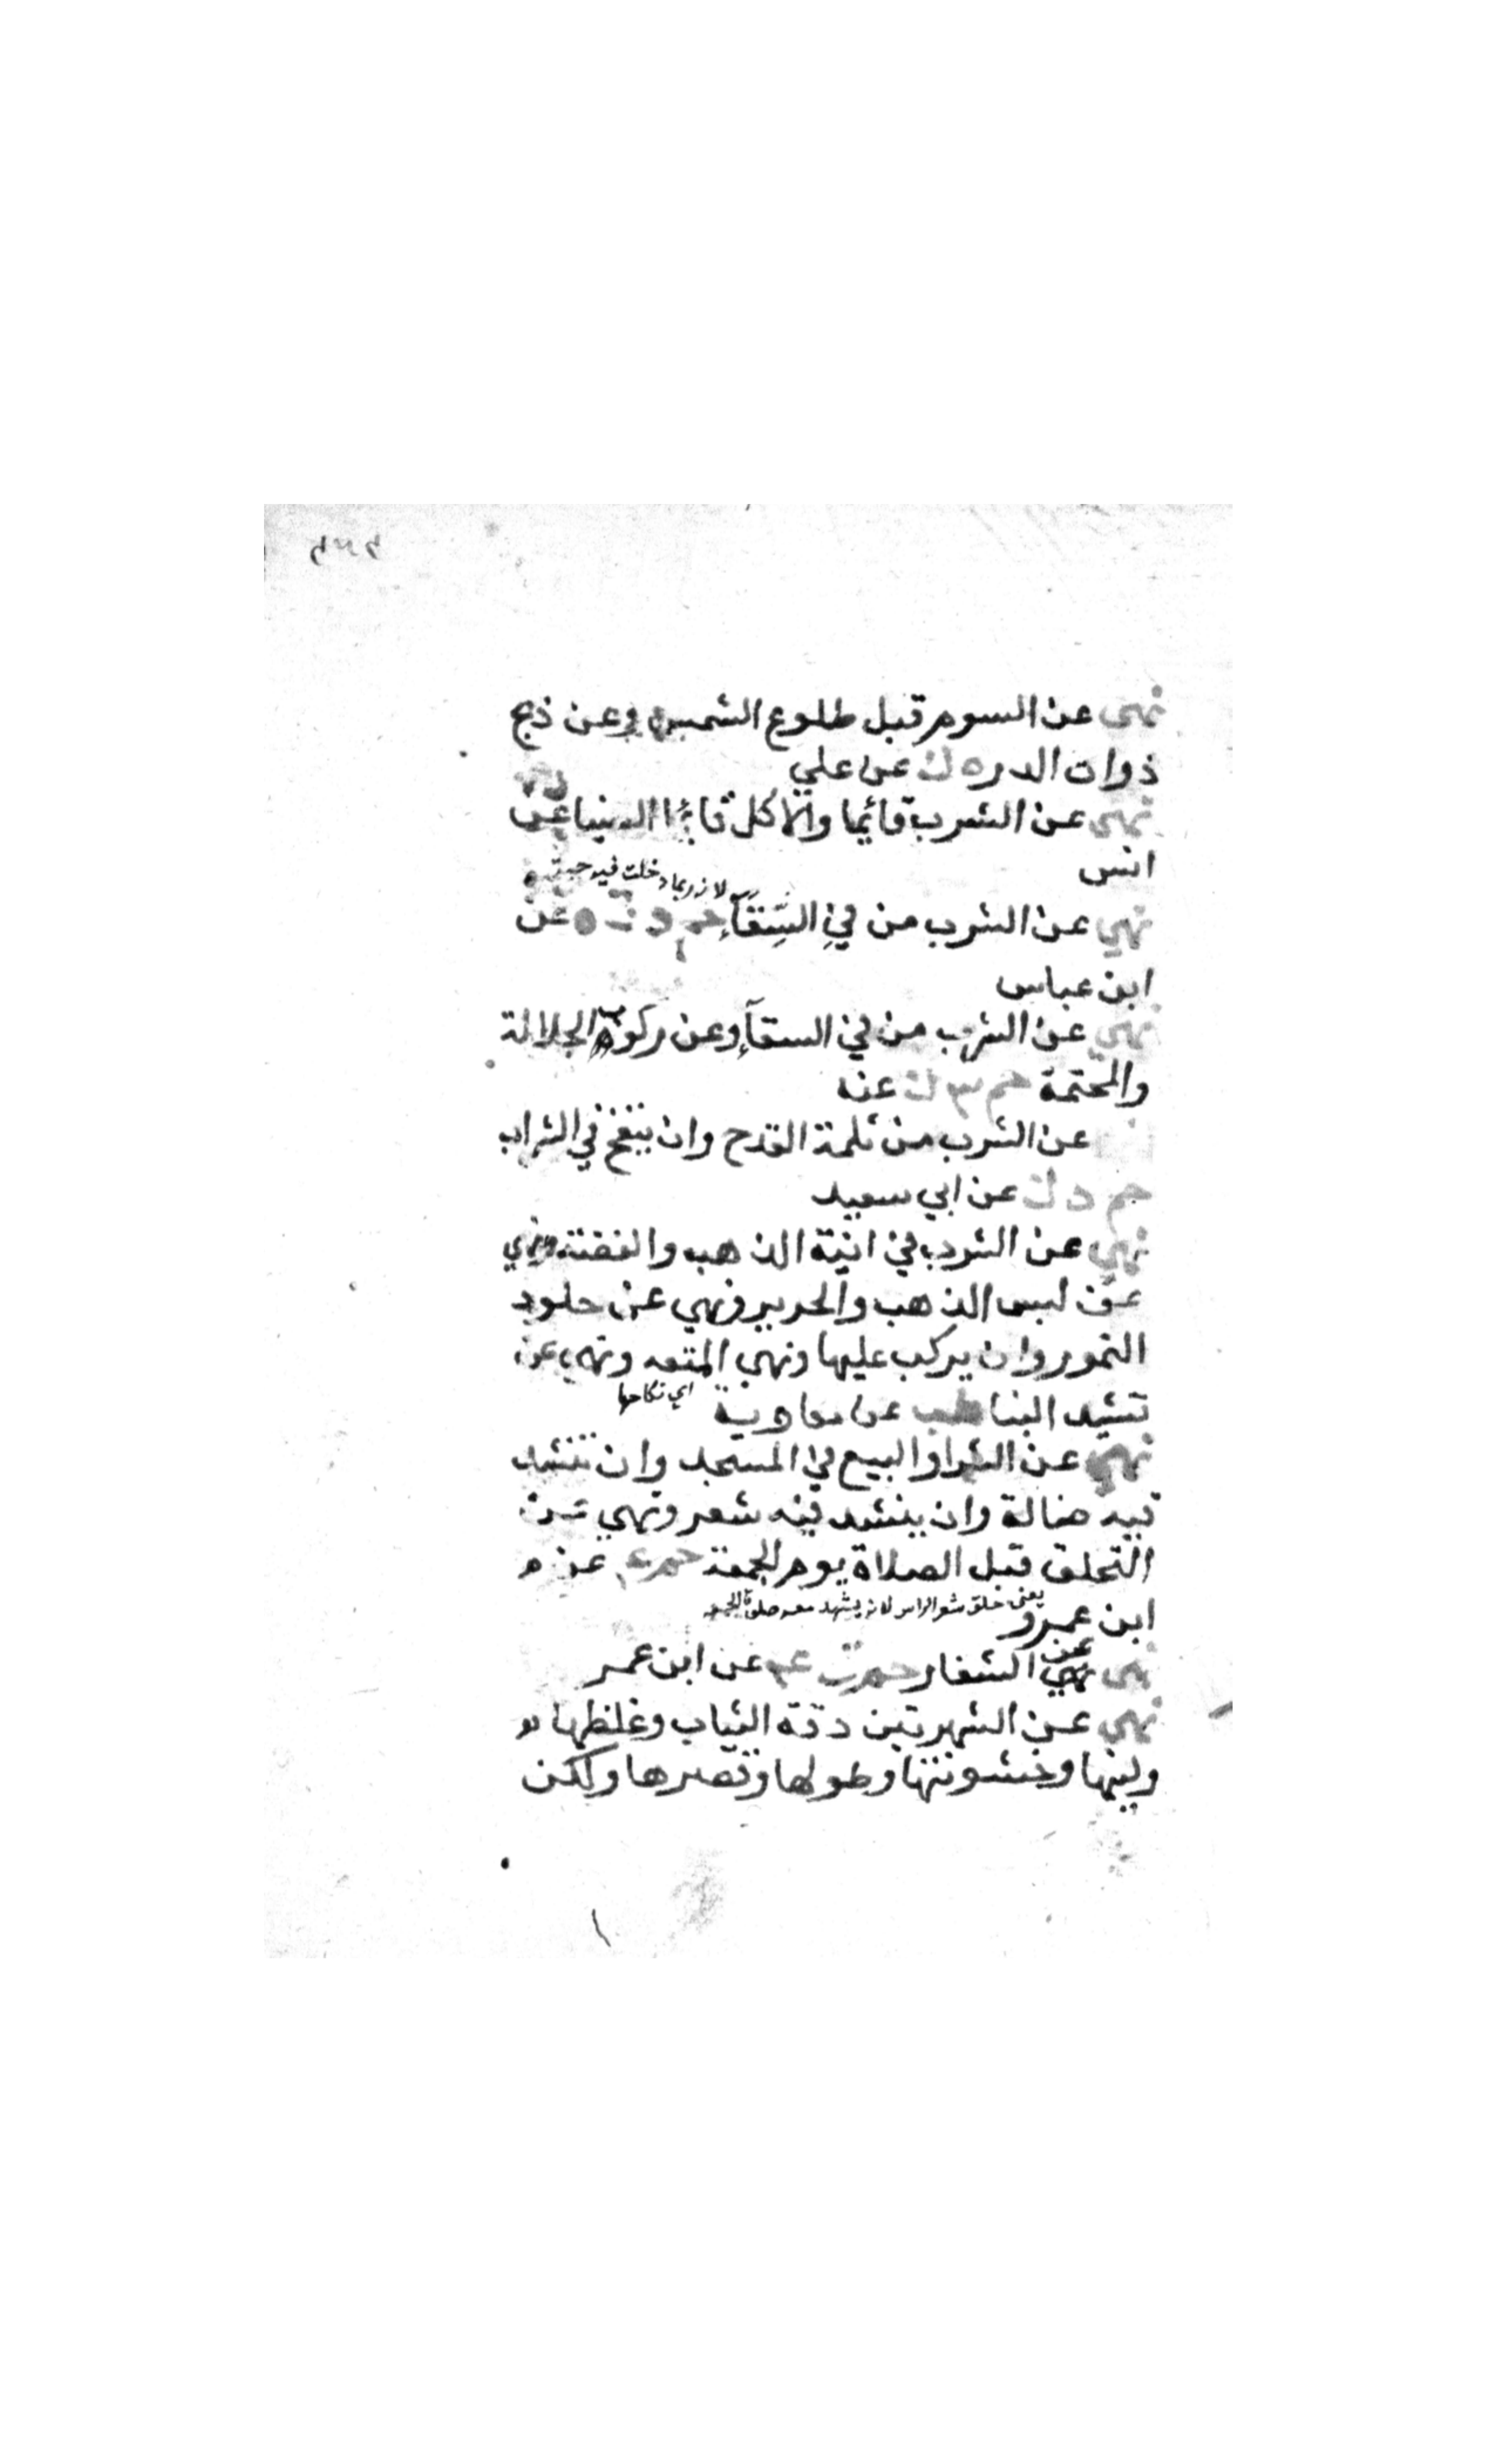 نهى عن السوم قبل طلوع الشمس وعن ذبح
ذوات الدر ه ك عن علي
نهى عن الشرب قائما والاكل قائما الضيا عن
انس
لانه ربما دخلت فيه حية
نهي عن الشرب من في السِّقَآءِ حم د ت ه عن
ابن عباس
نهي عن الشرب من في السقآء وعن ركوب الجلالة
والمجثمة حم ٣ ك عنه
عن الشرب من ثلمة القدح وان ينفخ في الشراب
حم د ك عن ابي سعيد
نهي عن الشرب في انية الذهب والفضة ونهي
عن لبس الذهب والحرير ونهي عن جلود
النمور وان يركب عليها ونهى المتعه ونهى عن
اي نكاحها
تشيد البنا طب عن معاوية
نهي عن الشرا والبيع في المسجد وان تنشد
فيه ضالة وان ينشد فيه شعر ونهي عن
التحلق قبل الصلاة يوم الجمعة حم ع عن
يعنى حلق شعر الراس لانه يشهد معه صلوة الجمعه
ابن عمرو
نهى عن الشغار حم ق ع عن ابن عمر
نهي عن الشهرتين دقة الثياب وغلظها
ولينها وخشونتها وطولها وقصرها ولكن